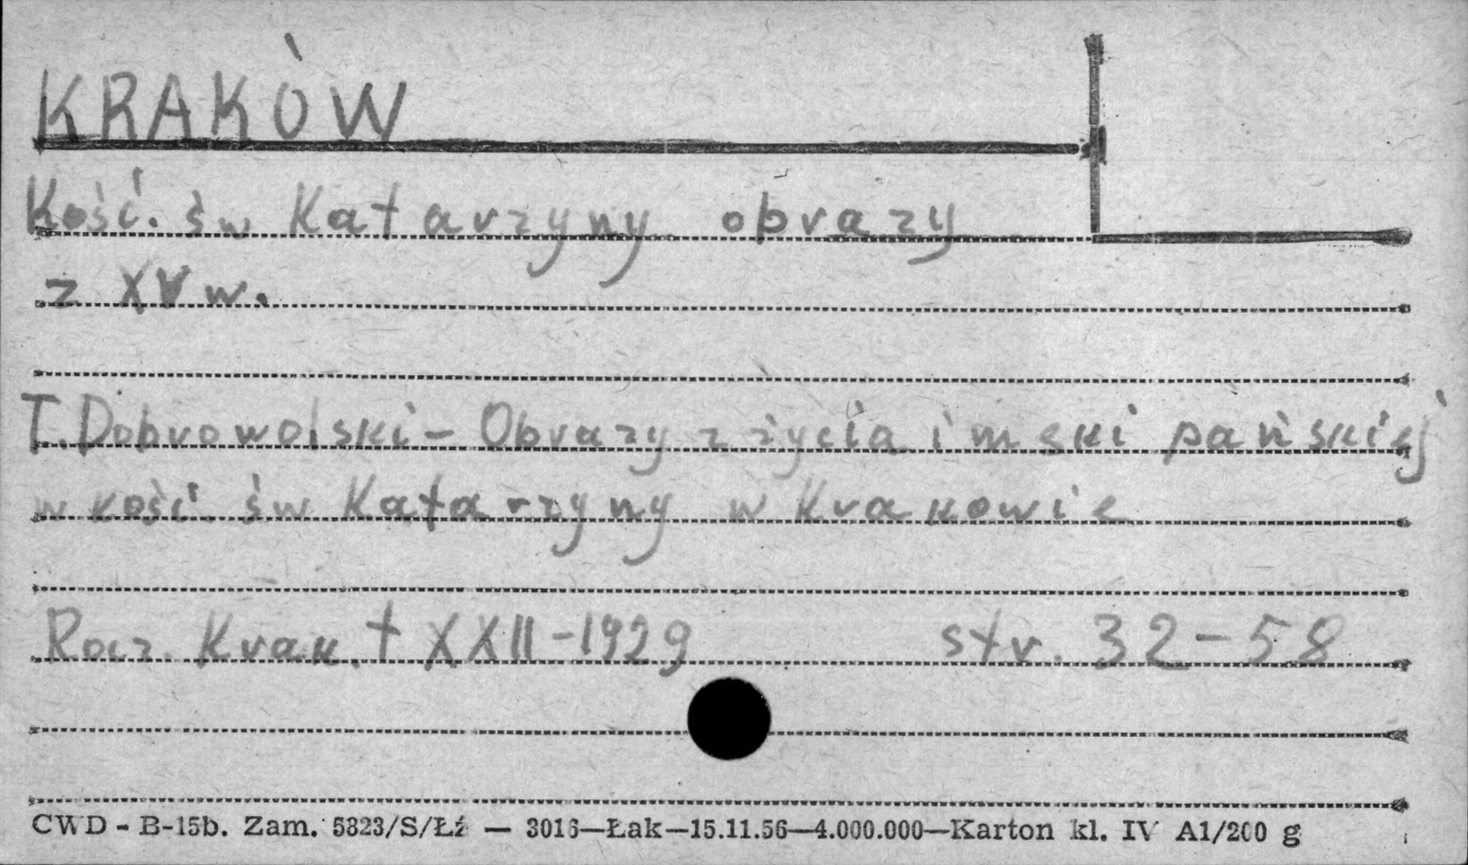 KRAKÓW
Kość. św Katarzyny obrazy
z XV w.
T. Dobrowolski - Obrazy z życia i męki pańskiej
w kość. św Katarzyny w Krakowie
Rocz. Krak. t XXII - 1929 str. 32-58
CWD - B-15b. Zam. 5323/S/Łź — 3016—Łak—15.11.56—4.000.000—Karton kl. IV A1/200 g